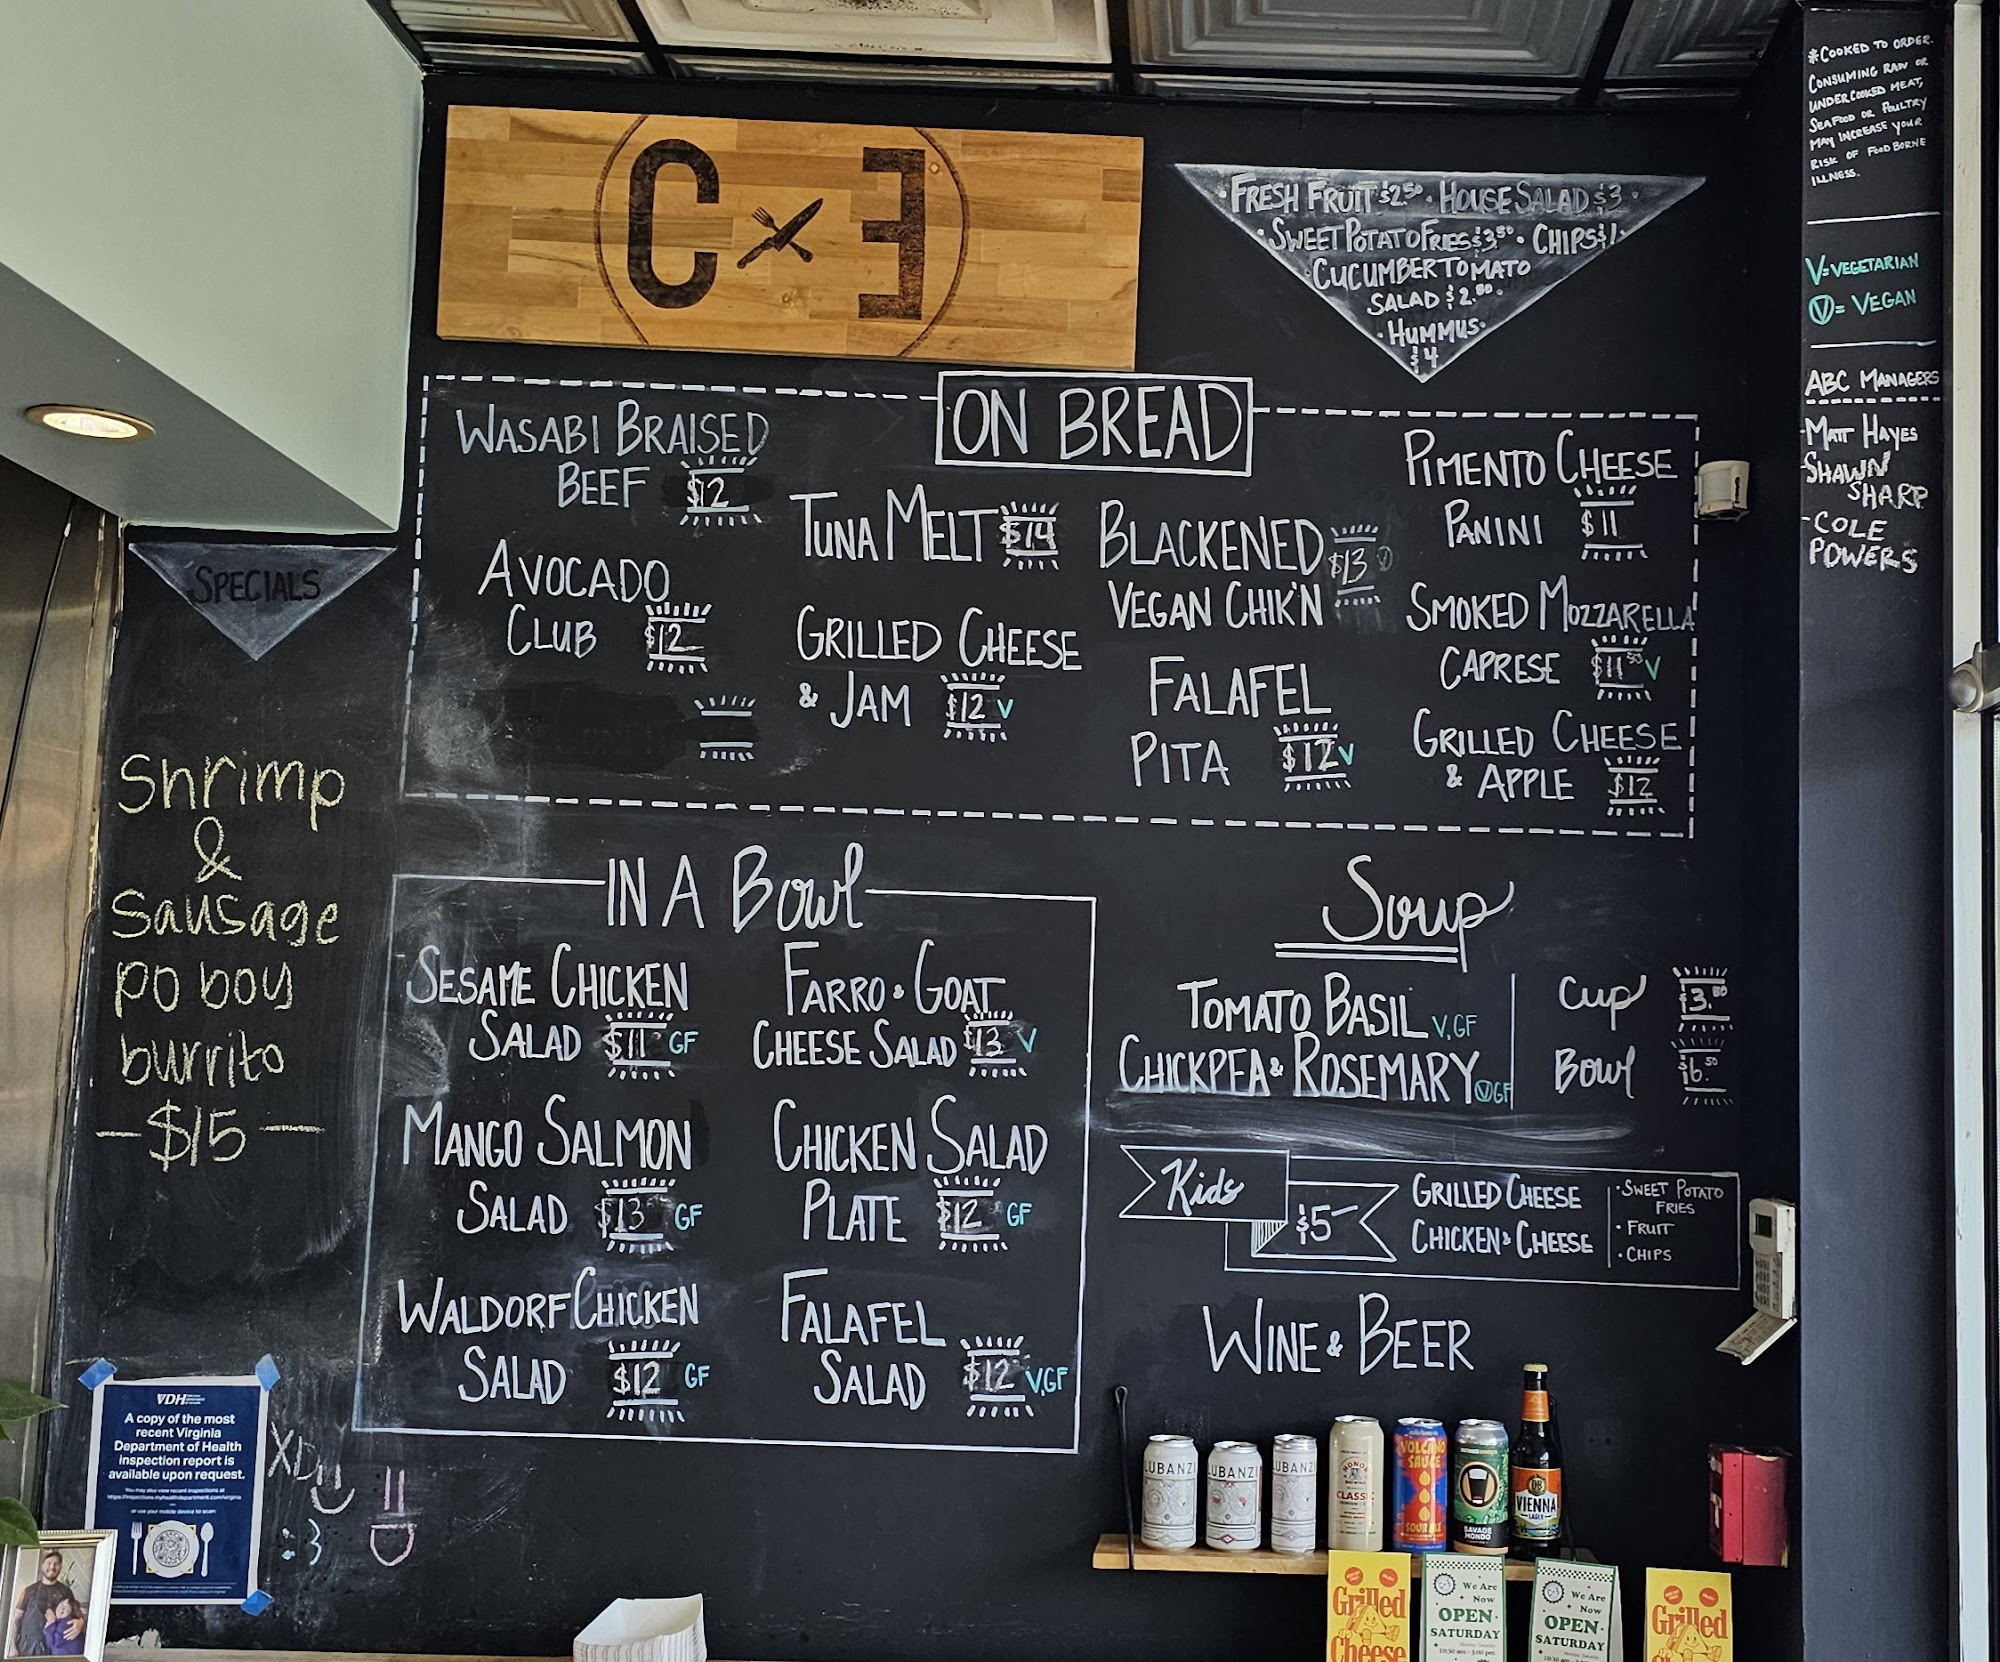 C E
FRESH FRUIT $2.50 · HOUSE SALAD $3 ·
· SWEET POTATO FRIES $3.50 · CHIPS $1
CUCUMBER TOMATO
SALAD $2.00
· HUMMUS ·
$4
*COOKED TO ORDER.
CONSUMING RAW OR
UNDERCOOKED MEAT,
SEAFOOD OR POULTRY
MAY INCREASE YOUR
RISK OF FOODBORNE
ILLNESS.
V=VEGETARIAN
Ⓥ= VEGAN
ABC MANAGERS
-MATT HAYES
-SHAWN
SHARP
-COLE
POWERS
SPECIALS
Shrimp
&
Sausage
po boy
burrito
-$15-
ON BREAD
WASABI BRAISED
BEEF $12
AVOCADO
CLUB $12
TUNA MELT $14
GRILLED CHEESE
& JAM $12 V
BLACKENED
VEGAN CHIK'N $13 Ⓥ
FALAFEL
PITA $12 V
PIMENTO CHEESE
PANINI $11
SMOKED MOZZARELLA
CAPRESE $11.50 V
GRILLED CHEESE
& APPLE $12
IN A BOWL
SESAME CHICKEN
SALAD $11 GF
MANGO SALMON
SALAD $13 GF
WALDORF CHICKEN
SALAD $12 GF
FARRO & GOAT
CHEESE SALAD $13 V
CHICKEN SALAD
PLATE $12 GF
FALAFEL
SALAD $12 V,GF
Soup
TOMATO BASIL V,GF
CHICKPEA & ROSEMARY Ⓥ GF
Cup
Bowl $6.50
Kids $5-
GRILLED CHEESE
CHICKEN & CHEESE
· SWEET POTATO
FRIES
· FRUIT
· CHIPS
WINE & BEER
VDH
A copy of the most
recent Virginia
Department of Health
inspection report is
available upon request.
You may also view recent inspections at
or use your mobile device to scan:
XD
:3
LUBANZI
LUBANZI
LUBANZI
CLASSIC
VOLCANO
SAUCE
SOUR ALE
SAVAGE
MONDO
DB
VIENNA
LAGER
Grilled
Cheese
We Are
Now
OPEN
SATURDAY
10:30 am - 3:00 pm
We Are
Now
OPEN
SATURDAY
10:30 am - 3:00 pm
Grilled